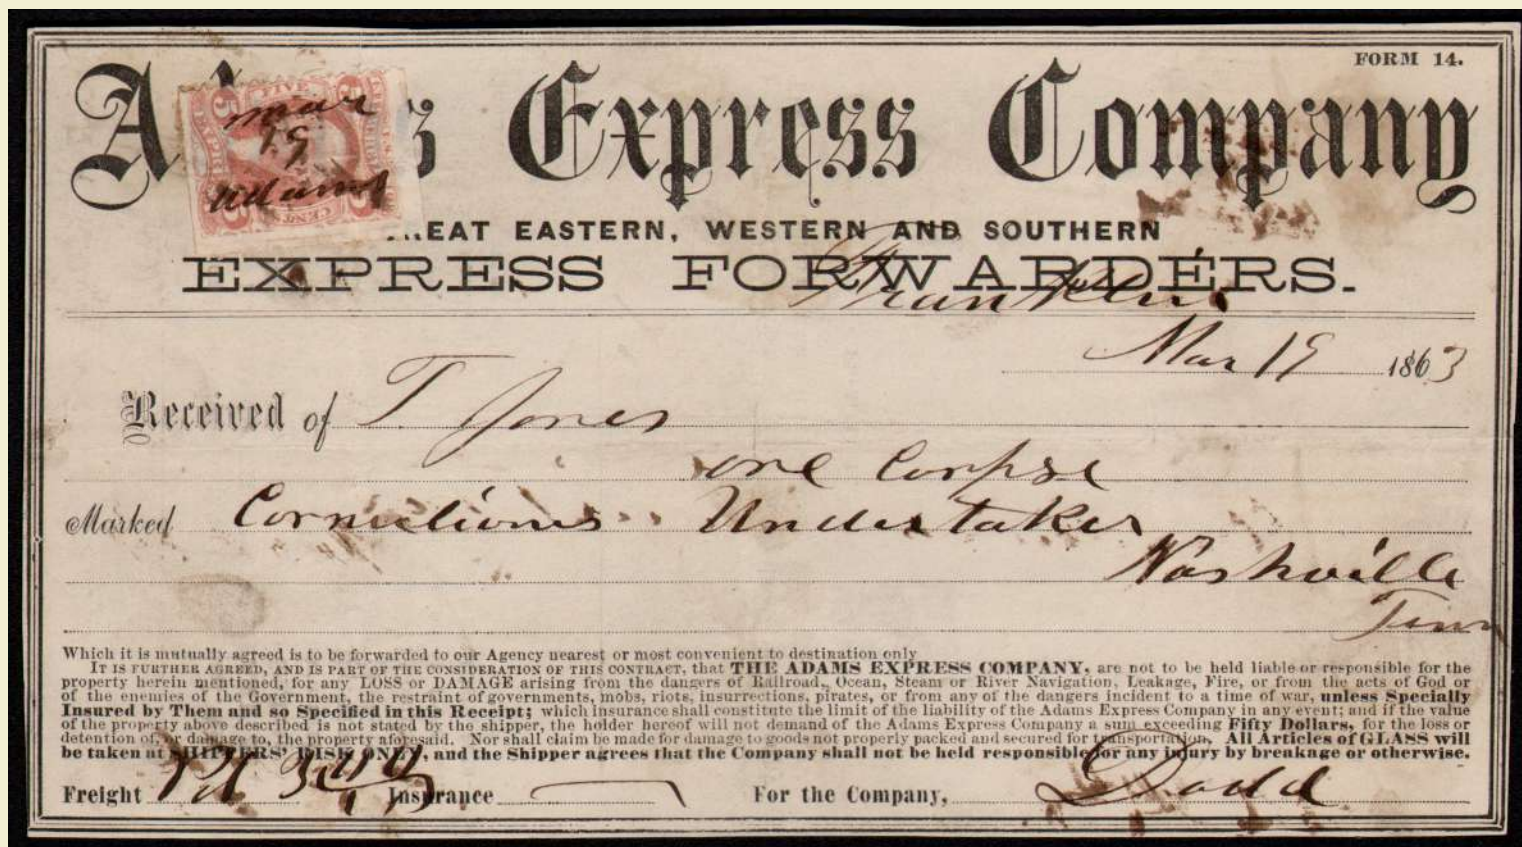 FORM 14.
A s Express Company
FIVE
5 5
mar
19
adams
CENTS
EAT EASTERN, WESTERN AND SOUTHERN
EXPRESS FORWARDERS.
Franklin
Mar 19 1863
Received of T. Jones
one Corpse
Marked Cornelious Undertaker
Nashville
Tenn
Which it is mutually agreed is to be forwarded to our Agency nearest or most convenient to destination only
IT IS FURTHER AGREED, AND IS PART OF THE CONSIDERATION OF THIS CONTRACT, that THE ADAMS EXPRESS COMPANY, are not to be held liable or responsible for the
property herein mentioned, for any LOSS or DAMAGE arising from the dangers of Railroad, Ocean, Steam or River Navigation, Leakage, Fire, or from the acts of God or
of the enemies of the Government, the restraint of governments, mobs, riots, insurrections, pirates, or from any of the dangers incident to a time of war, unless Specially
Insured by Them and so Specified in this Receipt; which insurance shall constitute the limit of the liability of the Adams Express Company in any event; and if the value
of the property above described is not stated by the shipper, the holder hereof will not demand of the Adams Express Company a sum exceeding Fifty Dollars, for the loss or
detention of, or damage to, the property aforesaid. Nor shall claim be made for damage to goods not properly packed and secured for transportation. All Articles of GLASS will
be taken at SHIPPERS' RISK ONLY, and the Shipper agrees that the Company shall not be held responsible for any injury by breakage or otherwise.
Freight Pd Insurance For the Company, Dodd